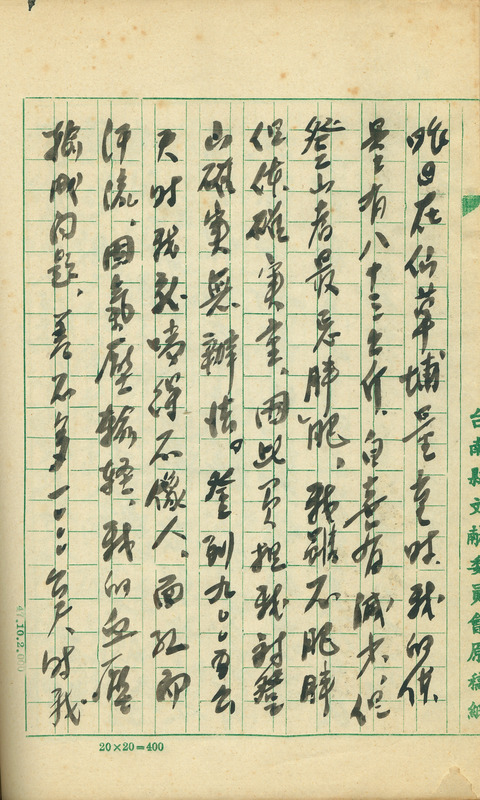 台南縣文獻委員會原稿紙
昨日在仙草埔量重時,我的体
量有八十三公斤,自喜有減少,但
登山者最忌胖肥,我雖不肥胖
但体確實重,因此負担我對登
山確實無辦法。登到九〇〇多公
尺時我就喘得不像人,面紅而
汗流,因氣壓較輕,我的血壓
成問題,差不多一〇〇〇公尺時我
20×20=400